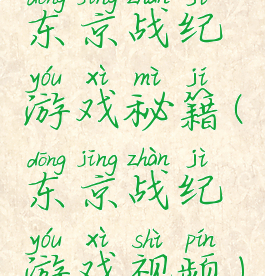 dōng jīng zhàn jì
东京战纪
yóu xì mì jí
游戏秘籍(
dōng jīng zhàn jì
东京战纪
yóu xì shì pín
游戏视频)